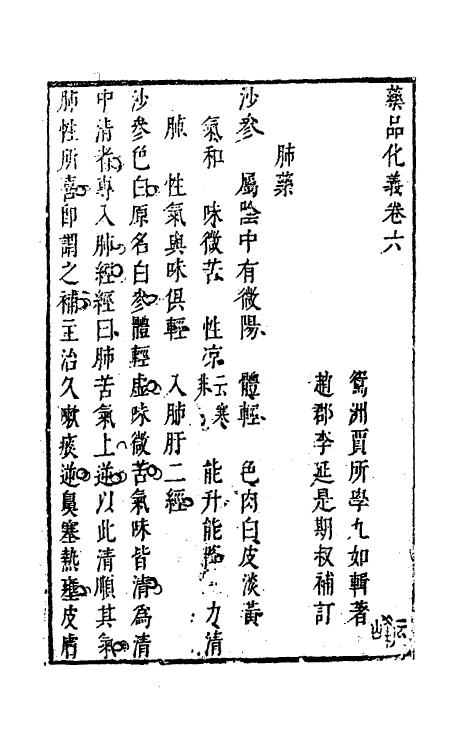 藥品化義卷六
鴛洲賈所學九如輯著
趙郡李延是期叔補訂
肺藥
沙參　屬陰中有微陽　體輕　色肉白皮淡黃
氣和　味微苦　性凉云寒未　能升能降　力清
肺　性氣與味俱輕　入肺肝二經
沙參色白原名白參體輕虛味微苦氣味皆清爲清
中清者專入肺經經曰肺苦氣上逆以此清順其氣
肺性所喜卽謂之補主治久嗽痰逆鼻塞熱壅皮膚